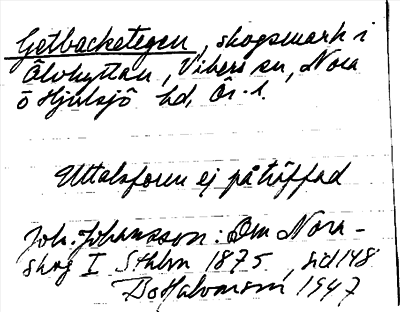 Getbacketegen, skogsmark i
Älvhyttan, Vikers sn, Nora
o Hjulsjö hd, Ör. l.
Uttalsform ej påträffad
Joh. Johansson: Om Nora-
skog I Sthlm 1875, sid 148
Bo Halvarson 1947